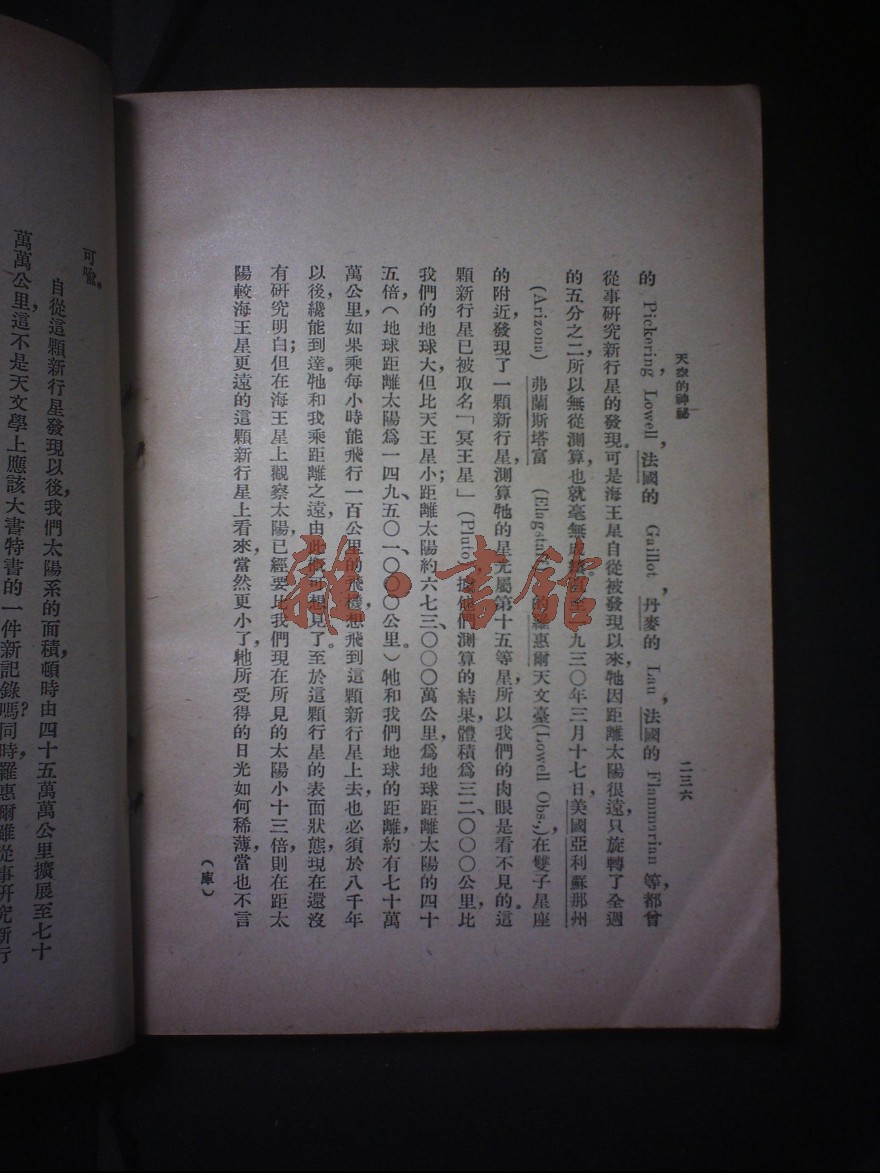 天空的神祕
二三六
的 Pickering, Lowell, 法國的 Gaillot, 丹麥的 Lau, 法國的 Flammarian 等,都曾
從事研究新行星的發現。可是海王星自從被發現以來,牠因距離太陽很遠,只旋轉了全週
的五分之二,所以無從測算,也就毫無成績。直至一九三〇年三月十七日,美國亞利蘇那州
(Arizona) 弗蘭斯塔富 (Flagstaff) 的羅惠爾天文臺(Lowell Obs.,)在雙子星座
的附近,發現了一顆新行星,測算牠的星光屬第十五等星,所以我們的肉眼是看不見的。這
顆新行星已被取名「冥王星」(Pluto),據他們測算的結果,體積爲三二、〇〇〇公里,比
我們的地球大,但比天王星小;距離太陽約六七三、〇〇〇萬公里,爲地球距離太陽的四十
五倍,(地球距離太陽爲一四九、五〇一、〇〇〇公里。)牠和我們地球的距離,約有七十萬
萬公里,如果乘每小時能飛行一百公里的飛機,想飛到這顆新行星上去,也必須於八千年
以後纔能到達。牠和我乘距離之遠,由此概可想見了。至於這顆行星的表面狀態,現在還沒
有研究明白;但在海王星上觀察太陽,已經要比我們現在所見的太陽小十三倍,則在距太
陽較海王星更遠的這顆新行星上看來,當然更小了,牠所受得的日光如何稀薄,當也不言
(庫)
可喩。
自從這顆新行星發現以後,我們太陽系的面積,頓時由四十五萬萬公里擴展至七十
萬萬公里,這不是天文學上應該大書特書的一件新記錄嗎?同時,羅惠爾雖從事研究新行
雜·書館